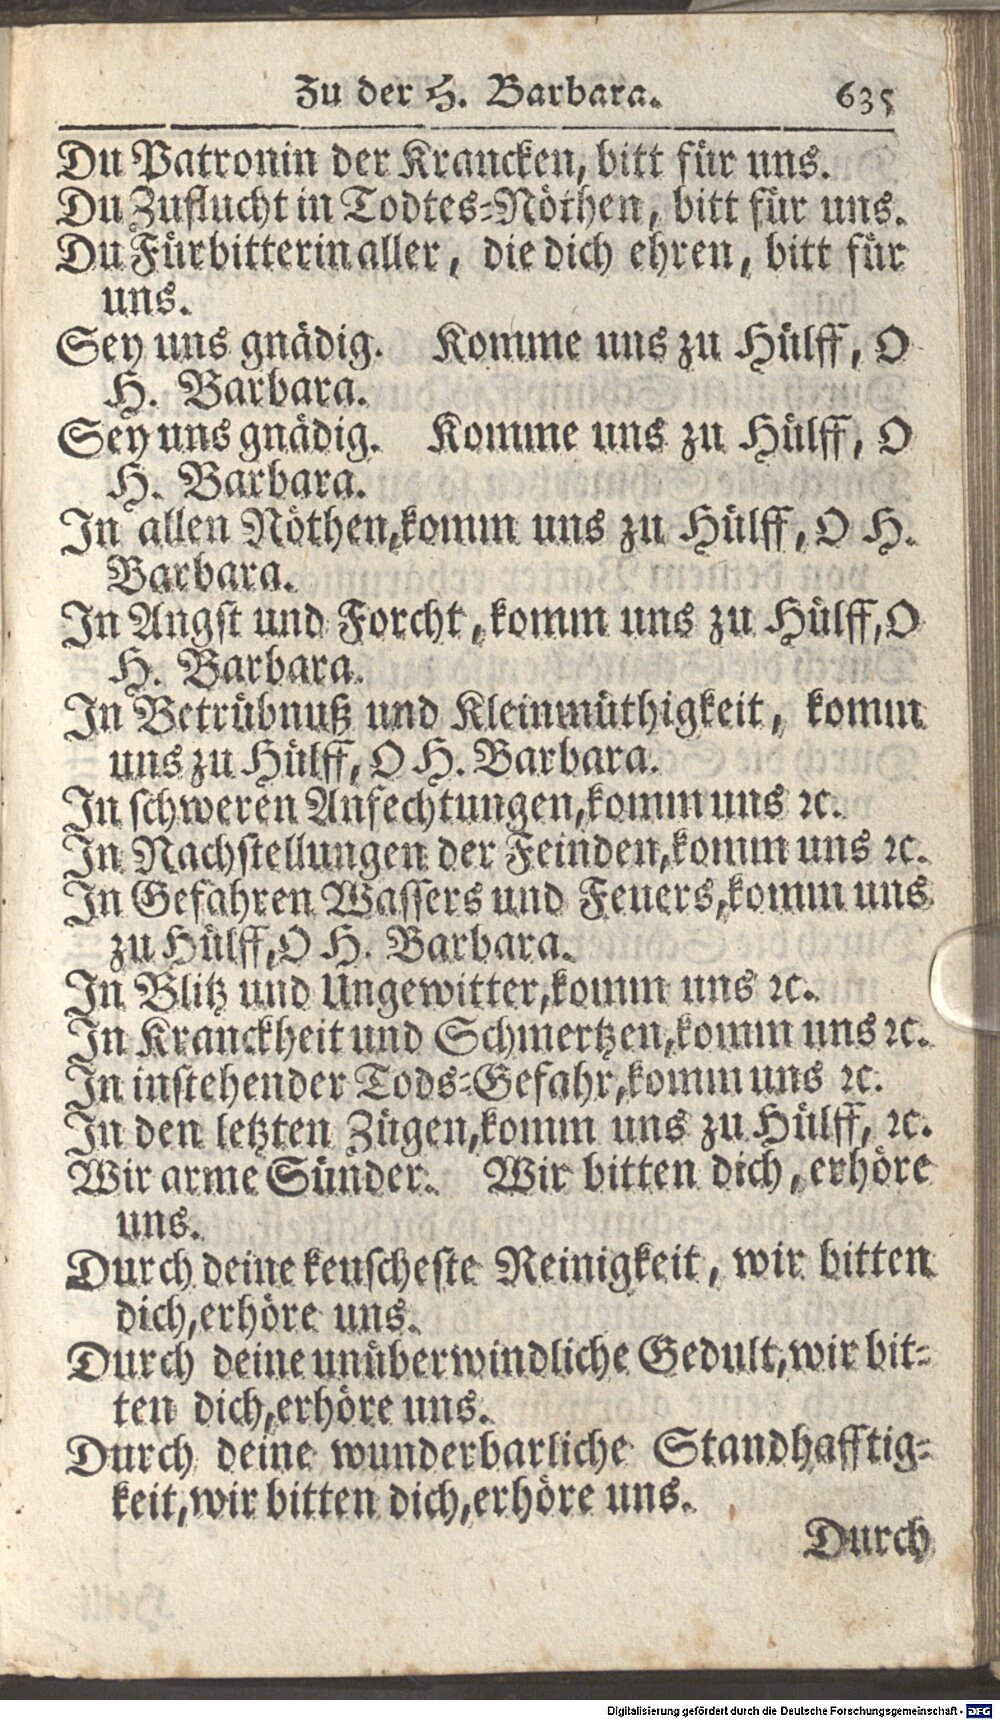 Zu der H. Barbara. 635
Du Patronin der Krancken, bitt für uns.
Du Zuflucht in Todtes-Nöthen, bitt für uns.
Du Fürbitterin aller, die dich ehren, bitt für
uns.
Sey uns gnädig. Komme uns zu Hülff, O
H. Barbara.
Sey uns gnädig. Komme uns zu Hülff, O
H. Barbara.
In allen Nöthen, komm uns zu Hülff, O H.
Barbara.
In Angst und Forcht, komm uns zu Hülff, O
H. Barbara.
In Betrübnuß und Kleinmüthigkeit, komm
uns zu Hülff, O H. Barbara.
In schweren Anfechtungen, komm uns ꝛc.
In Nachstellungen der Feinden, komm uns ꝛc.
In Gefahren Wassers und Feuers, komm uns
zu Hülff, O H. Barbara.
In Blitz und Ungewitter, komm uns ꝛc.
In Kranckheit und Schmertzen, komm uns ꝛc.
In instehender Tods-Gefahr, komm uns ꝛc.
In den letzten Zügen, komm uns zu Hülff, ꝛc.
Wir arme Sünder. Wir bitten dich, erhöre
uns.
Durch deine keuscheste Reinigkeit, wir bitten
dich, erhöre uns.
Durch deine unüberwindliche Gedult, wir bit-
ten dich, erhöre uns.
Durch deine wunderbarliche Standhafftig-
keit, wir bitten dich, erhöre uns.
Durch
Digitalisierung gefördert durch die Deutsche Forschungsgemeinschaft - DFG